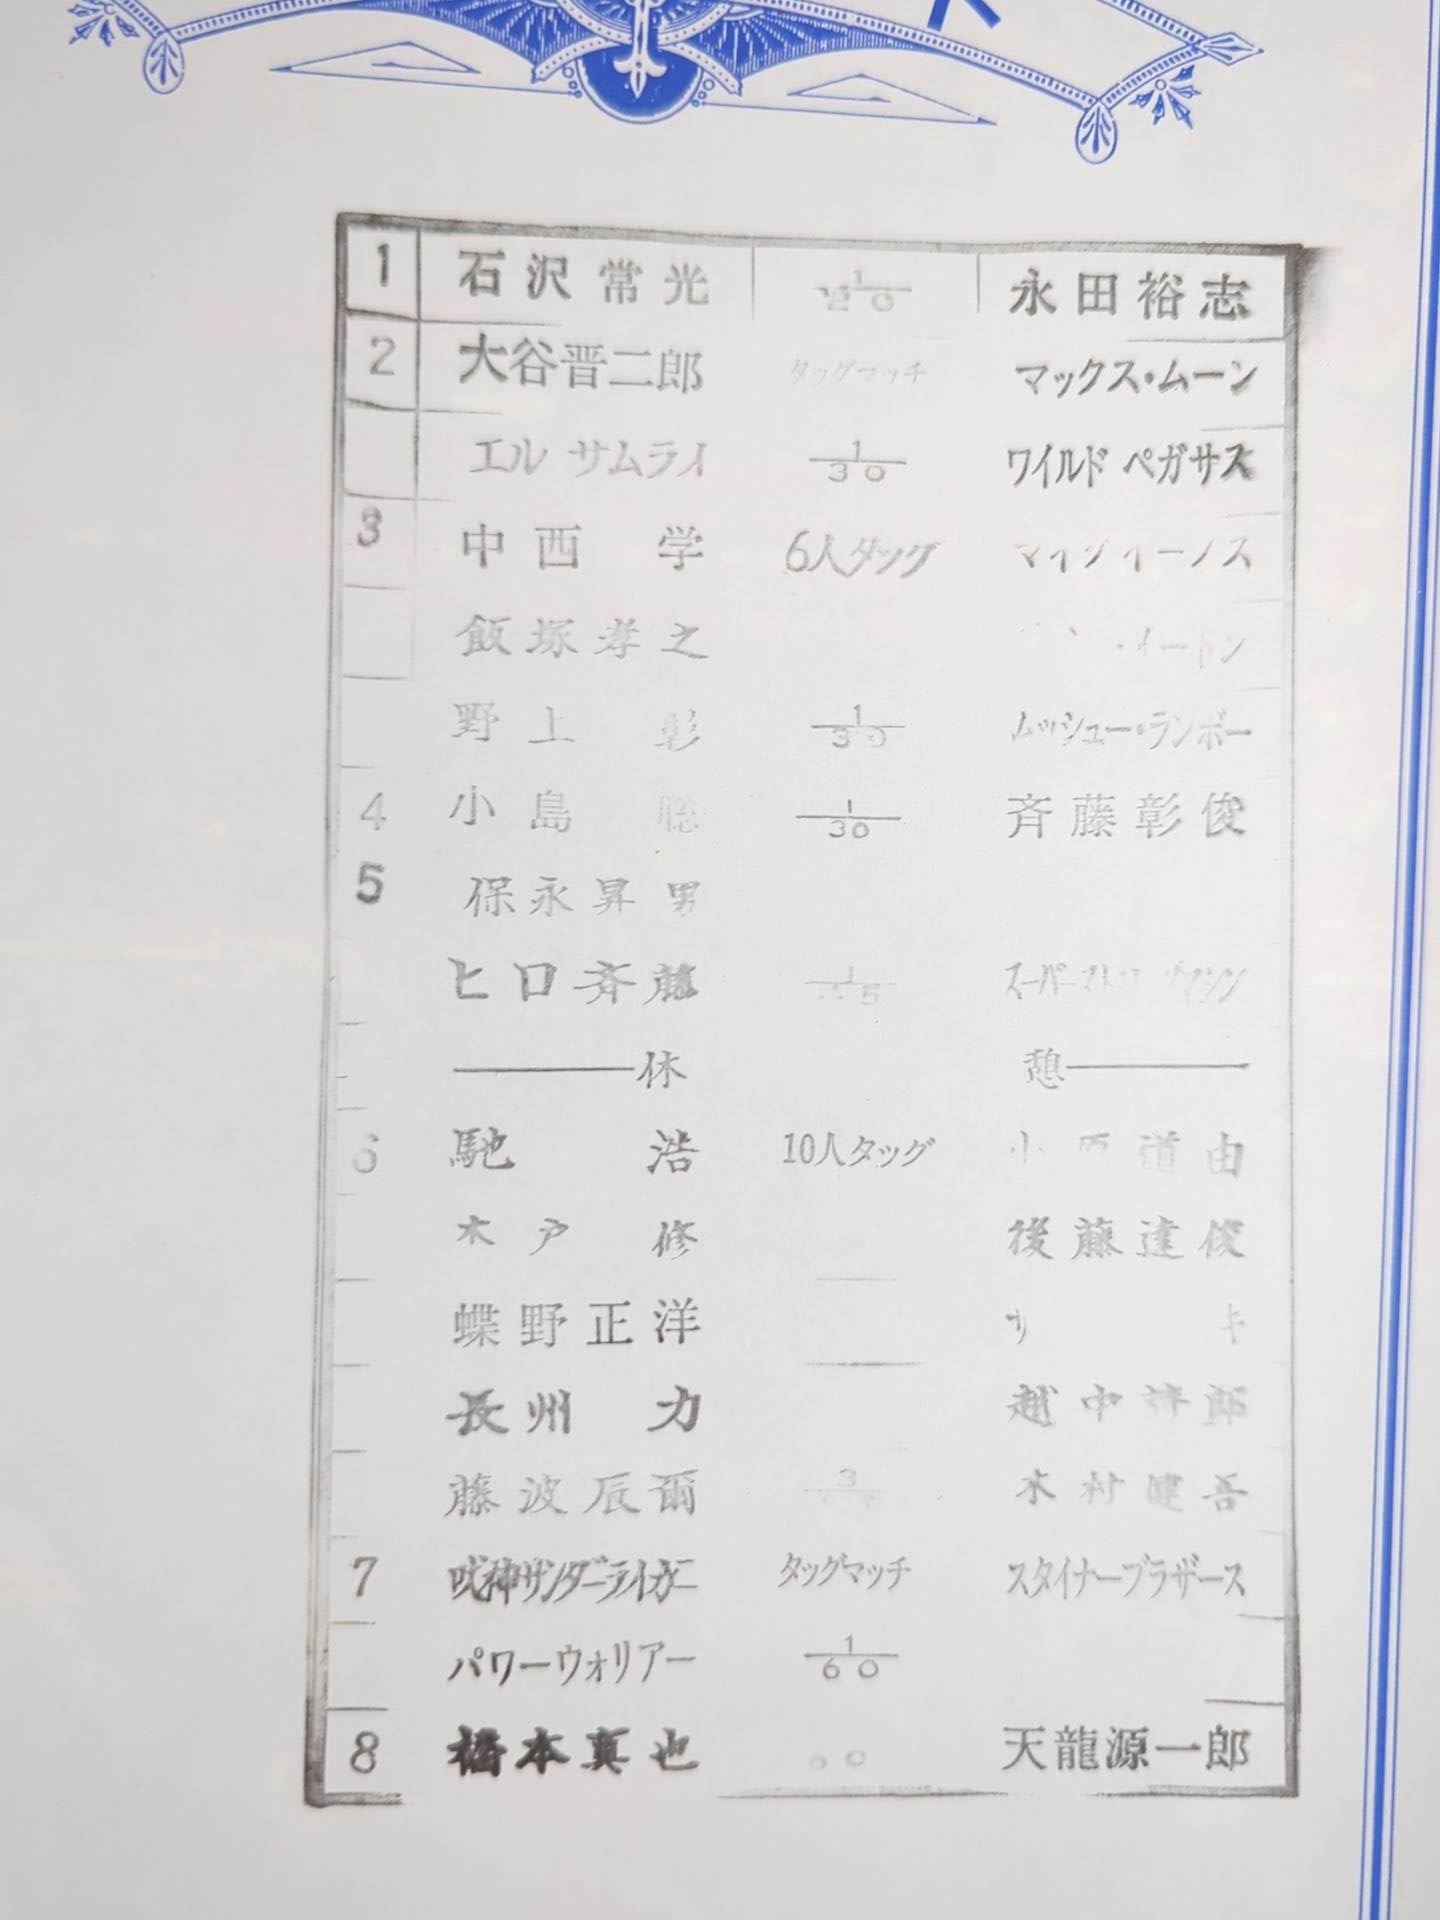 1 石沢常光 1/20 永田裕志
2 大谷晋二郎 タッグマッチ マックス・ムーン
エル サムライ 1/30 ワイルド ペガサス
3 中西学 6人タッグ
飯塚孝之 イートン
野上彰 1/30 ムッシュー・ランボー
4 小島聡 1/30 斉藤彰俊
5 保永昇男
ヒロ斉藤 スーパー
休憩
6 馳浩 10人タッグ 小原道由
木戸修 後藤達俊
蝶野正洋
長州力 越中詩郎
藤波辰爾 3 木村健吾
7 獣神サンダーライガー タッグマッチ スタイナーブラザース
パワーウォリアー 1/60
8 橋本真也 天龍源一郎